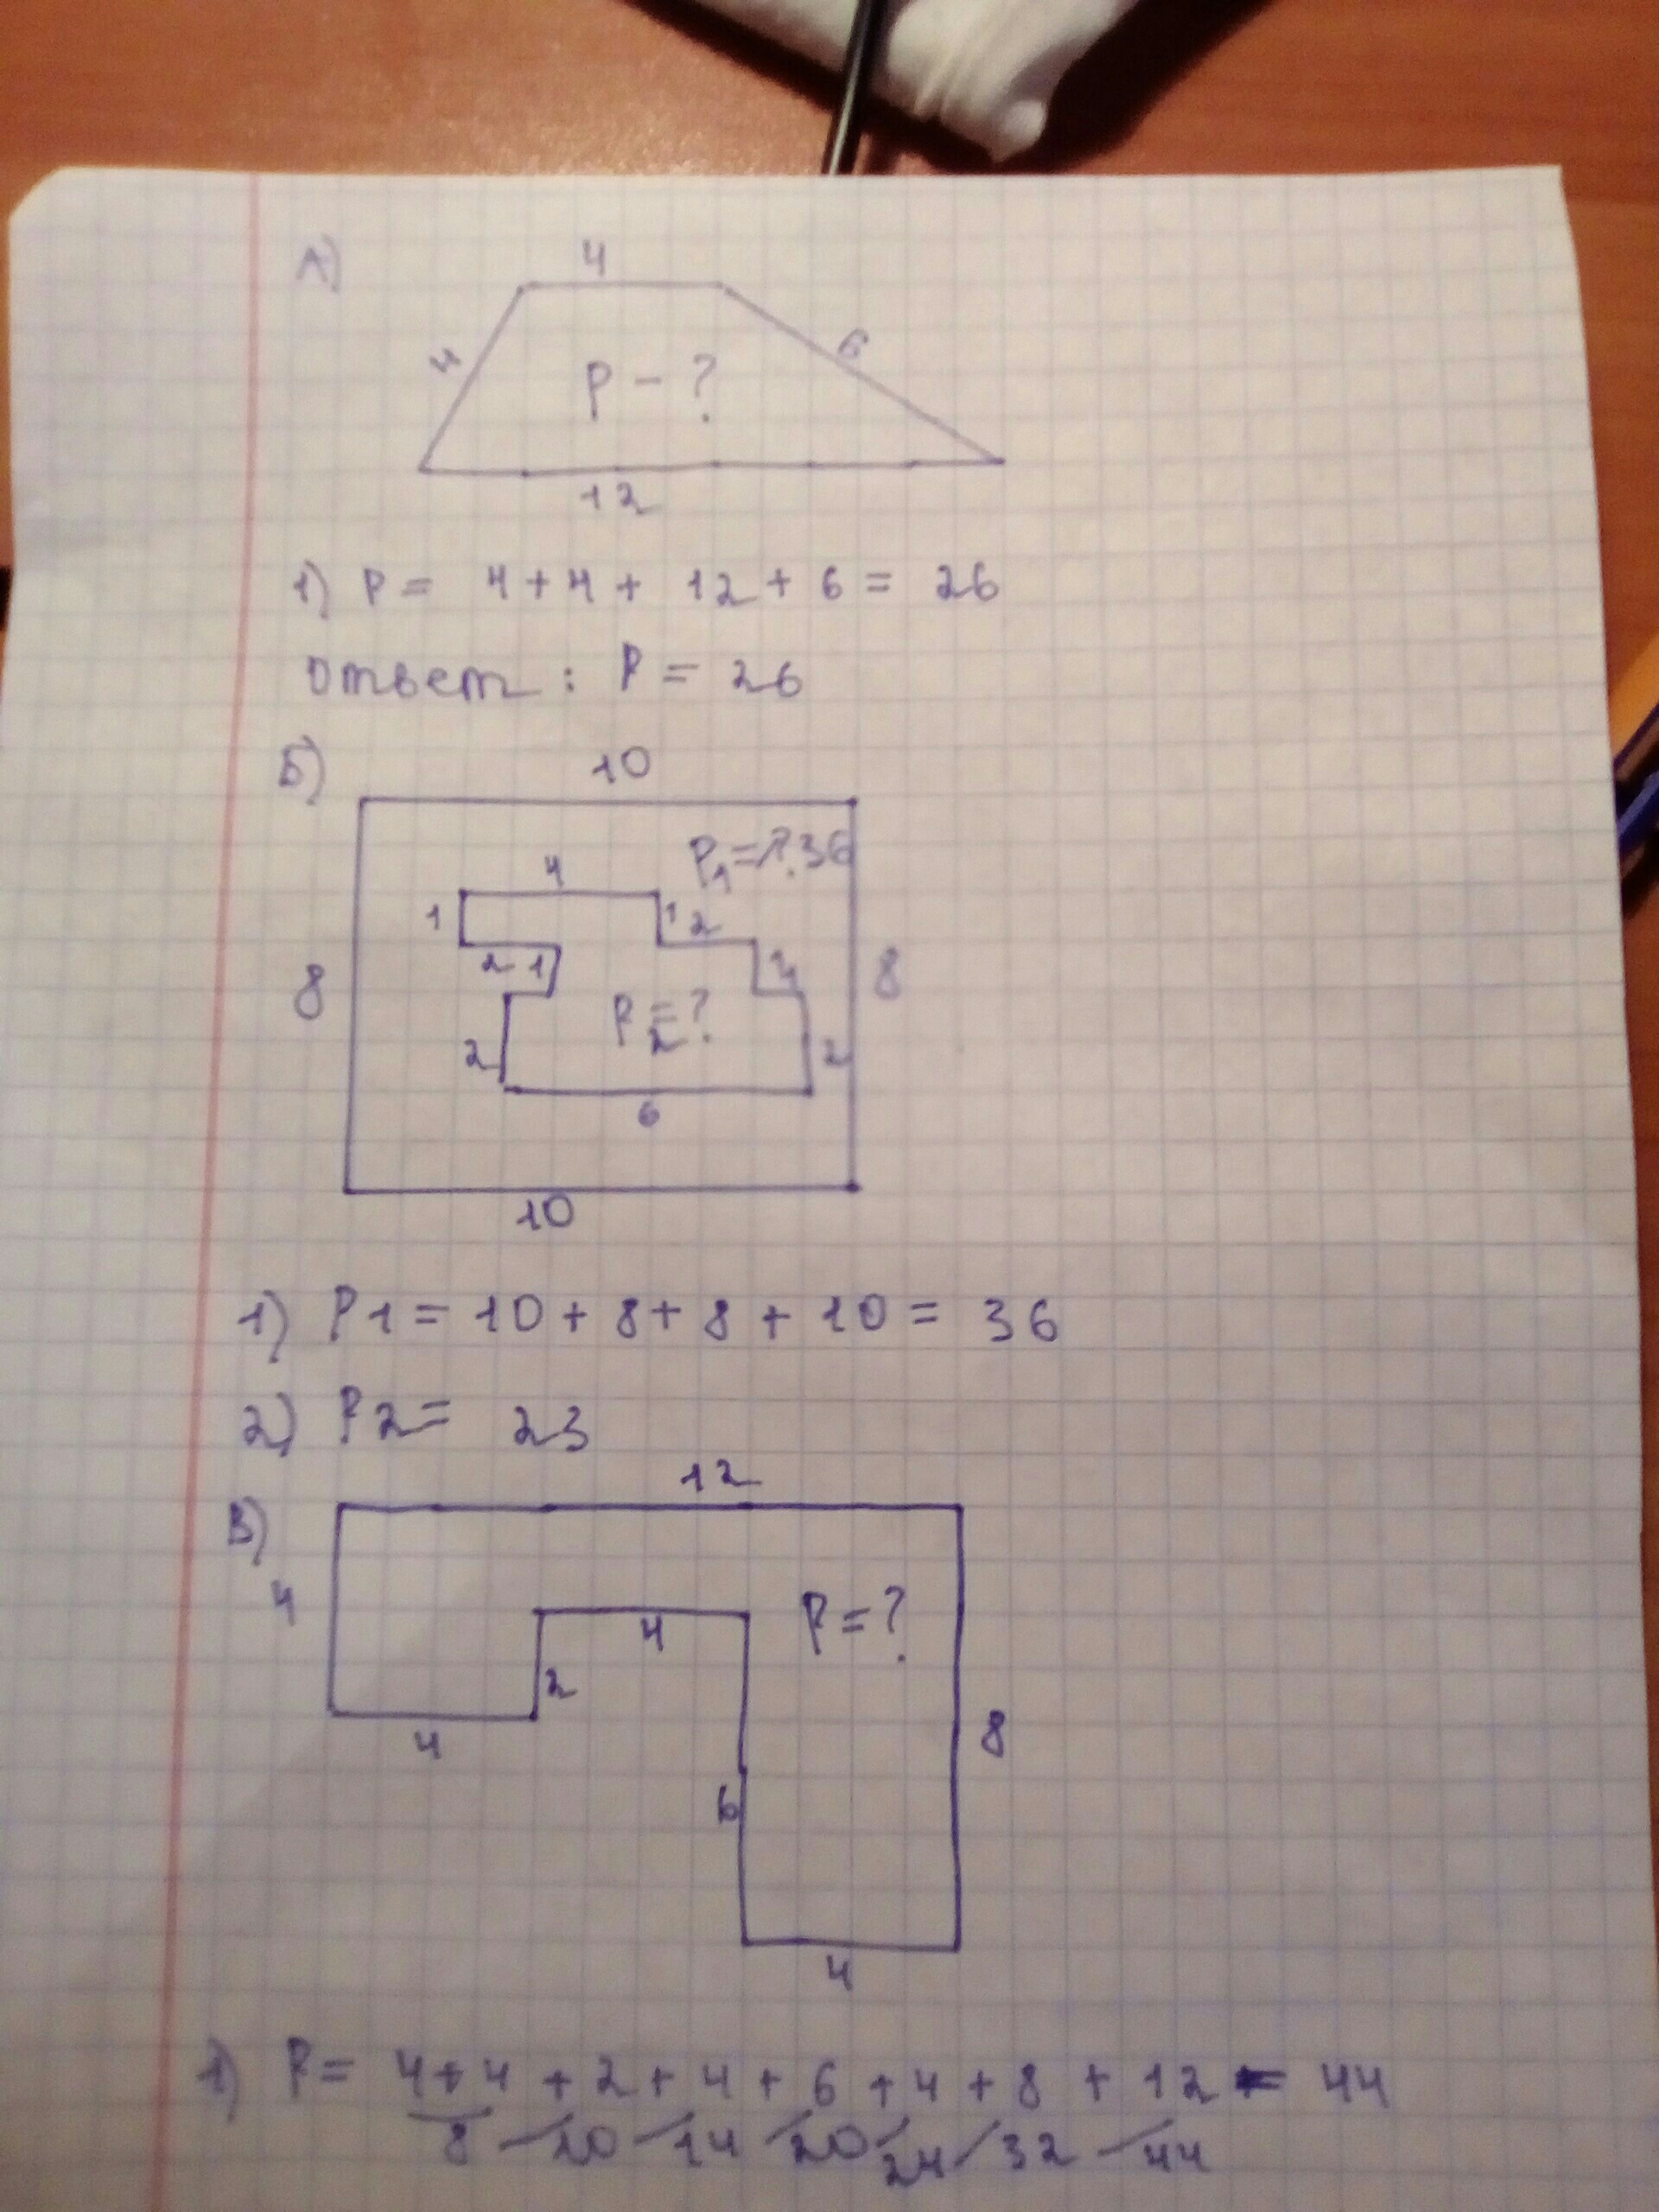 А)
4
4
6
P - ?
12
1) P = 4 + 4 + 12 + 6 = 26
Ответ : P = 26
Б)
10
P1 = ? 36
4
1
1 2
2 1
8
8
P2 = ?
2
2
6
10
1) P1 = 10 + 8 + 8 + 10 = 36
2) P2 = 23
12
В)
4
4
P = ?
2
4
8
6
4
1) P = 4 + 4 + 2 + 4 + 6 + 4 + 8 + 12 = 44
8 20 14 20 24 32 44